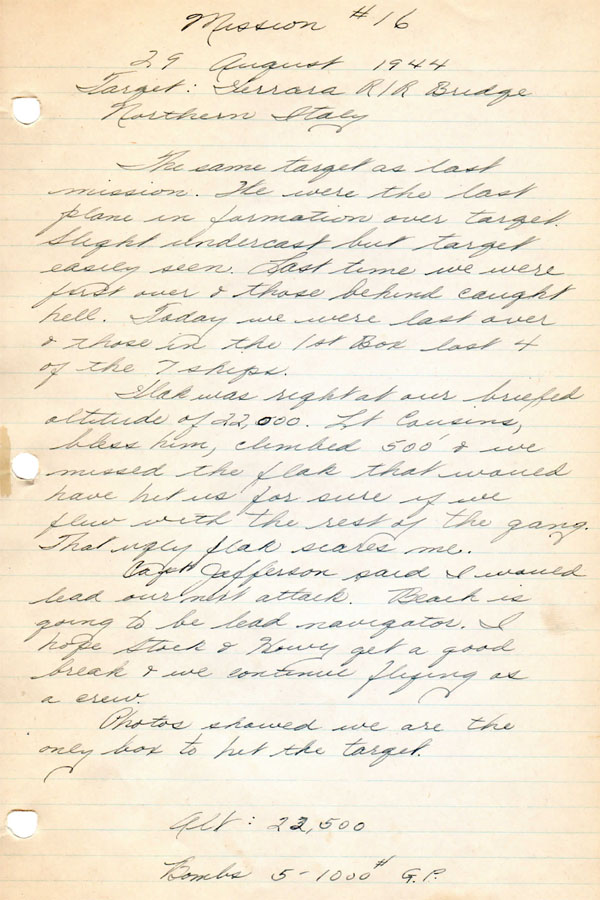 Mission #16
29 August 1944
Target: Ferrara R/R Bridge
Northern Italy
The same target as last
mission. We were the last
plane in formation over target.
Slight undercast but target
easily seen. Last time we were
first over & those behind caught
hell. Today we were last over
& those in the 1st Box lost 4
of the 7 ships.
Flak was right at our briefed
altitude of 22,000. Lt Cousins,
bless him, climbed 500' & we
missed the flak that would
have het us for sure if we
flew with the rest of the gang.
That ugly flak scares me.
Capt Jafferson said I would
lead our next attack. Beach is
going to be lead navigator. I
hope Stock & Howy get a good
break & we continue flying as
a crew.
Photos showed we are the
only box to het the target.
Alt: 22,500
Bombs 5-1000# G.P.